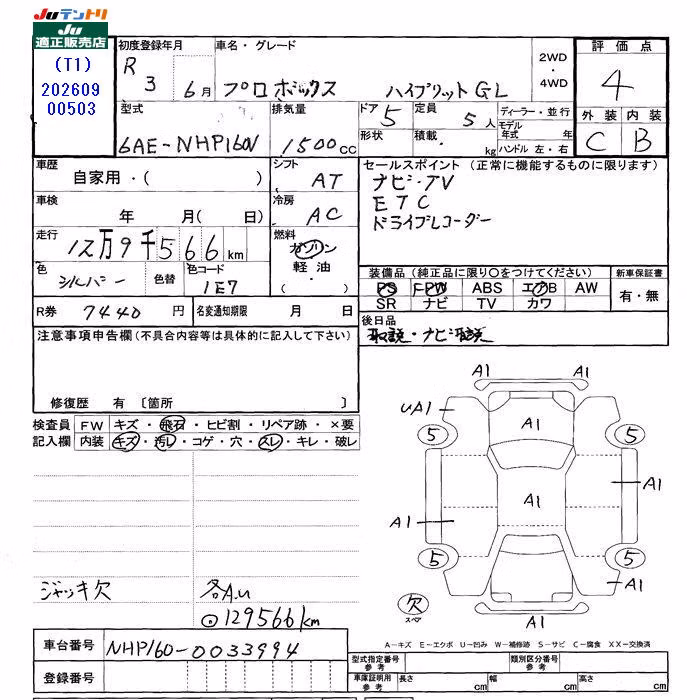 Juテントリ
Ju
適正販売店
(T1)
202609
00503
初度登録年月 車名・グレード 2WD・4WD 評価点
R3 6月 プロボックス ハイブリットGL 4
型式 排気量 ドア 5 定員 5人 ディーラー・並行 外装 内装
6AE-NHP160V 1500cc 形状 積載 kg モデル年式 年 C B
ハンドル 左・右
車歴 シフト セールスポイント(正常に機能するものに限ります)
自家用・( ) AT ナビ・TV
車検 冷房 ETC
年 月(日) AC ドライブレコーダー
走行 燃料
12万9千566km ガソリン
軽油・
( )
色 色替 色コード
シルバー 1E7
装備品(純正品に限り○をつけてください) 新車保証書
PS FPW ABS エアB AW 有・無
SR ナビ TV カワ
R券 7440円 名変通知期限 月 日
後日品
取説・ナビ取説
注意事項申告欄(不具合内容等は具体的に記入して下さい)
修復歴 有 〔箇所 〕
検査員 FW キズ・飛石・ヒビ割・リペア跡・×要
記入欄 内装 キズ・汚レ・コゲ・穴・スレ・キレ・破レ
A1 A1
UA1 A1
5 5
A1 A1
A1
5 5
A1
欠 A1
スペア
ジャッキ欠 各A.U
⊙129566km
A-キズ E-エクボ U-凹み W-補修跡 S-サビ C-腐食 XX-交換済
車台番号 NHP160-0033994
登録番号
型式指定番号 参考 類別区分番号 参考
車庫証明用 参考 長さ cm 幅 cm 高さ cm